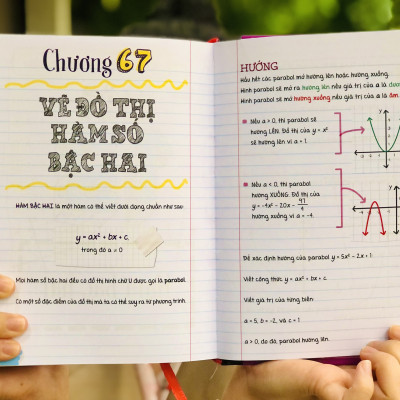 Chương 67
VẼ ĐỒ THỊ
HÀM SỐ
BẬC HAI
HÀM BẬC HAI là một hàm có thể viết dưới dạng chuẩn như sau:
y = ax² + bx + c.
trong đó a ≠ 0
Mọi hàm số bậc hai đều có đồ thị hình chữ U được gọi là parabol.
Có một số đặc điểm của đồ thị mà ta có thể suy ra từ phương trình.
HƯỚNG
Hầu hết các parabol mở hướng lên hoặc hướng xuống.
Hình parabol sẽ mở ra hướng lên nếu giá trị của a là
Hình parabol sẽ mở hướng xuống nếu giá trị của a là âm.
Nếu a > 0, thì parabol sẽ
hướng LÊN. Đồ thị của y = x²
sẽ hướng lên vì a = 1.
y
Nếu a < 0, thì parabol
hướng XUỐNG. Đồ thị của
y = -4x² - 20x - 97/4
hướng xuống vì a = -4.
y
Để xác định hướng của parabol y = 5x² - 2x + 1:
Viết công thức y = ax² + bx + c.
Viết giá trị của từng biến
a = 5, b = -2, và c = 1
a > 0, do đó, parabol hướng lên.